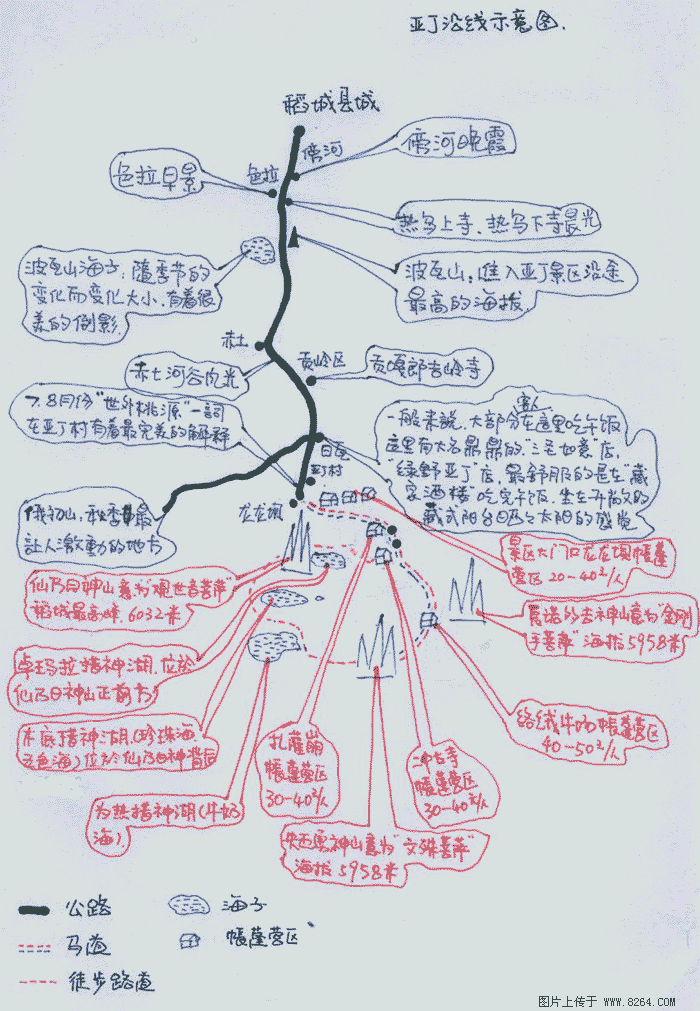 亚丁沿线示意图.
稻城县城
傍河
傍河晚霞
色拉
色拉早景
热乌上寺、热乌下寺晨光
波瓦山海子:随季节的
变化而变化大小、有着很
美的倒影.
波瓦山:进入亚丁景区沿途
最高的海拔.
赤土
赤土河谷风光
贡岭区
贡嘎郎吉岭寺
7.8月份"世外桃源"一詞
在亚丁村有着最完美的解释
客人
一般来说、大部分在这里吃午饭
这里有大名鼎鼎的"三毛如意"店,
绿野亚丁店,最舒服的是在"藏
家酒楼"吃完午饭、坐在开放的
藏式阳台晒太阳的感觉
日瓦
亚丁村
龙龙坝
俄初山:秋季最
让人激動的地方
景区大门口龙龙坝帳蓬
营区20-40元/人
仙乃日神山意为"观世音菩萨"
稻城最高峰,6032米
夏诺多吉神山意为"金刚
手菩萨"海拔5958米
卓玛拉措神湖,位於
仙乃日神山正前方
络绒牛场帳蓬营区
40-50元/人
木底措神湖(珍珠海
五色海)位於仙乃日神背后
扎薩崩
帳蓬营区
30-40元/人
冲古寺
帳蓬营区
30-40元/人
为热措神湖(牛奶
海).
央迈勇神山意为"文殊菩萨"
海拔5958米
公路
海子
马道
帳蓬营区
徒步路道
图片上传于 www.8264.com